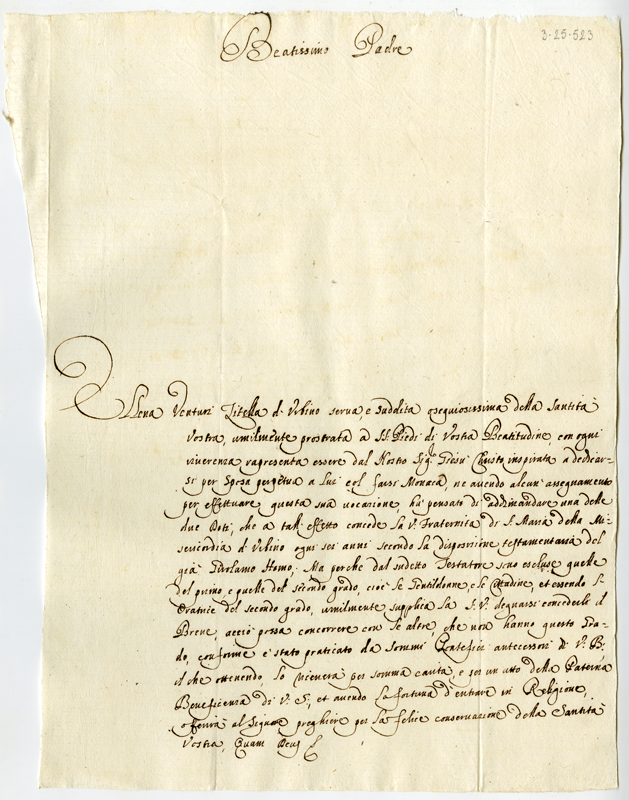 3-25-523
Beatissimo Padre
Elena Venturi Zitella d'Urbino serva, e suddita ossequiosissima della Santità
Vostra, umilmente prostrata a SS. Piedi di Vostra Beatitudine con ogni
riverenza rapresenta essere dal Nostro Sigr. Giesù Christo inspirata a dedicar-
si per Sposa perpetua a Lui col farsi Monaca, ne avendo alcun assegnamento
per effettuare questa sua vocazione, hà pensato di addimandare una delle
due Doti, che a tall' effetto concede la V. Fraternita di S. Maria della Mi-
sericordia d'Urbino ogni sei anni secondo la disposizione testamentaria del
già Girolamo Homo. Ma perche dal sudetto Testatore sono escluse quelle
del primo, e quelle del secondo grado, cioè le Gentildonne, e le Citadine, et essendo l'
Oratrice del secondo grado, umilmente supplica la S. V. degnarsi concederle il
Breve, acciò possa concorrere con le altre, che non hanno questo Gra-
do, conforme è stato praticato da sommi Pontefici antecessori di V. B.
il che ottenendo, lo riceverà per somma carità, e per un atto della Paterna
Beneficenza di V. S., et avendo la fortuna d'entrare in Religione,
offerirà al Signore preghiere per la felice conservazione della Santità
Vostra, Quam Deus